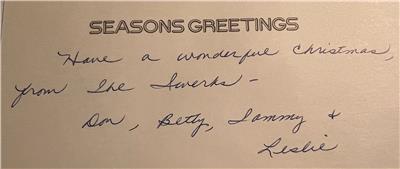 SEASONS GREETINGS
Have a wonderful Christmas,
from The Iwerks –
Don, Betty, Tammy &
Leslie